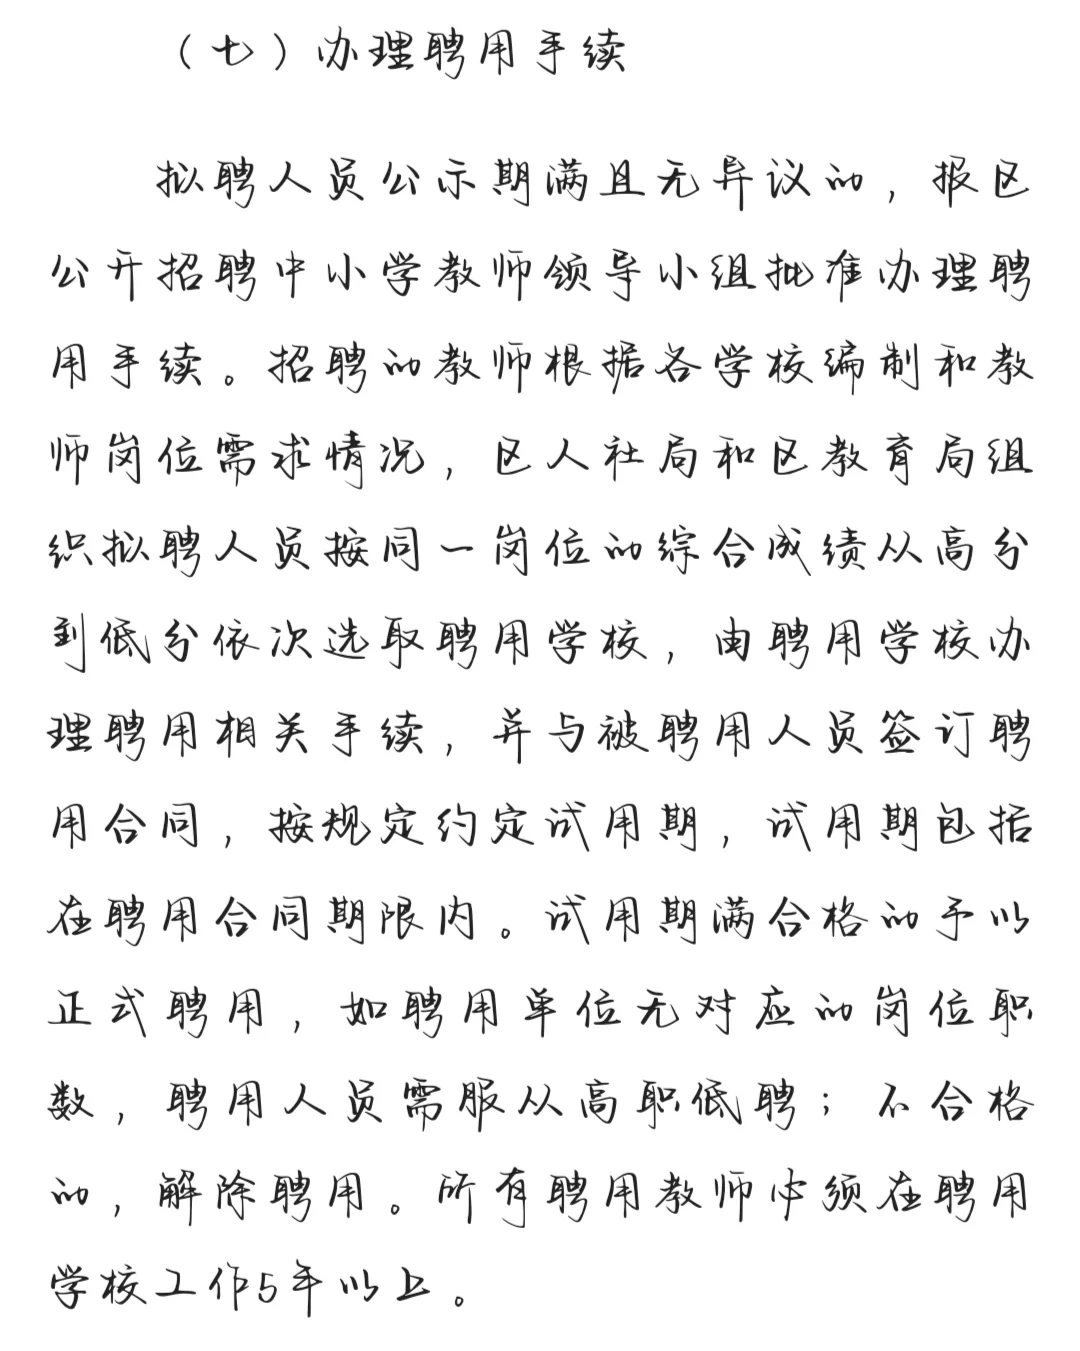 （七）办理聘用手续
拟聘人员公示期满且无异议的，报区
公开招聘中小学教师领导小组批准办理聘
用手续。招聘的教师根据各学校编制和教
师岗位需求情况，区人社局和区教育局组
织拟聘人员按同一岗位的综合成绩从高分
到低分依次选取聘用学校，由聘用学校办
理聘用相关手续，并与被聘用人员签订聘
用合同，按规定约定试用期，试用期包括
在聘用合同期限内。试用期满合格的予以
正式聘用，如聘用单位无对应的岗位职
数，聘用人员需服从高职低聘；不合格
的，解除聘用。所有聘用教师必须在聘用
学校工作5年以上。